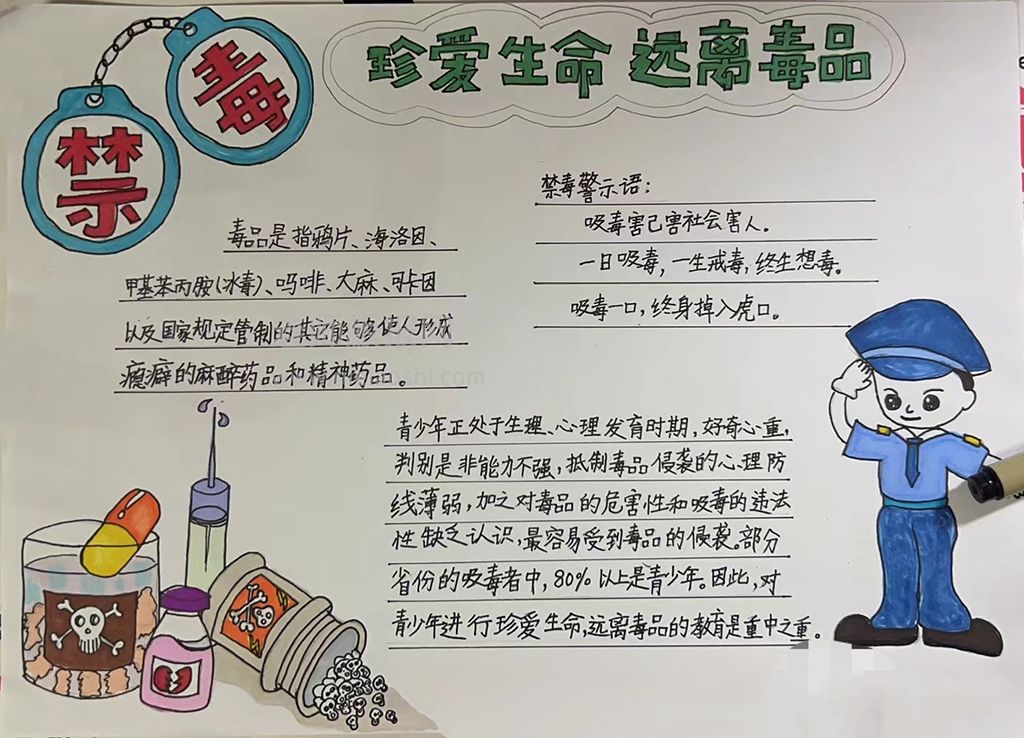 禁毒
珍爱生命 远离毒品
毒品是指鸦片、海洛因、
甲基苯丙胺(冰毒)、吗啡、大麻、可卡因
以及国家规定管制的其它能够使人形成
瘾癖的麻醉药品和精神药品。
禁毒警示语:
吸毒害己害社会害人。
一日吸毒,一生戒毒,终生想毒。
吸毒一口,终身掉入虎口。
青少年正处于生理、心理发育时期,好奇心重,
判别是非能力不强,抵制毒品侵袭的心理防
线薄弱,加之对毒品的危害性和吸毒的违法
性缺乏认识,最容易受到毒品的侵袭。部分
省份的吸毒者中,80%以上是青少年。因此,对
青少年进行珍爱生命,远离毒品的教育是重中之重。